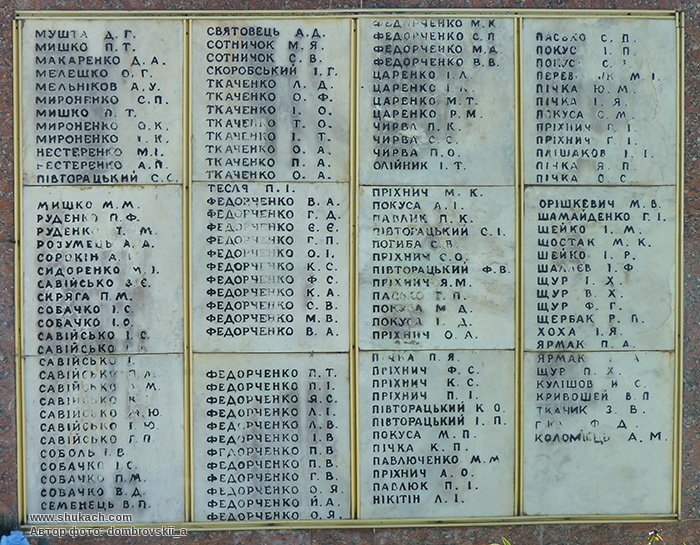 МУШТА Д. Г.
МИШКО П. Т.
МАКАРЕНКО Д. А.
МЕЛЕШКО О. Г.
МЕЛЬНІКОВ А. У.
МИРОНЕНКО С. П.
МИШКО П. Т.
МИРОНЕНКО О. К.
МИРОНЕНКО І. К.
НЕСТЕРЕНКО М. І.
НЕСТЕРЕНКО А. П.
ПІВТОРАЦЬКИЙ С. С.
МИШКО М. М.
РУДЕНКО П. Ф.
РУДЕНКО Т. М.
РОЗУМЕЦЬ А. Д.
СОРОКІН А. І.
СИДОРЕНКО М. І.
САВІЙСЬКО Є.
СКРЯГА П. М.
СОБАЧКО І. С.
СОБАЧКО І. О.
САВІЙСЬКО І. С.
САВІЙСЬКО І.
САВІЙСЬКО І.
САВІЙСЬКО
САВІЙСЬКО М.
САВІЙСЬКО
САВІЙСЬКО Ю.
САВІЙСЬКО Ю.
САВІЙСЬКО П.
СОБОЛЬ І. В.
СОБАЧКО І. С.
СОБАЧКО П. М.
СОБАЧКО В. Д.
СЕМЕНЕЦЬ В. П.
СВЯТОВЕЦЬ А. Д.
СОТНИЧОК М. Я.
СОТНИЧОК С. В.
СКОРОБСЬКИЙ І. Г.
ТКАЧЕНКО Л. Д.
ТКАЧЕНКО О. Ф.
ТКАЧЕНКО І. О.
ТКАЧЕНКО Т. О.
ТКАЧЕНКО І. Т.
ТКАЧЕНКО О. А.
ТКАЧЕНКО П. А.
ТКАЧЕНКО О. А.
ТЕСЛЯ П. І.
ФЕДОРЧЕНКО В. А.
ФЕДОРЧЕНКО Г. Д.
ФЕДОРЧЕНКО Є. Є.
ФЕДОРЧЕНКО Г. П.
ФЕДОРЧЕНКО О. І.
ФЕДОРЧЕНКО К. С.
ФЕДОРЧЕНКО Ф. С.
ФЕДОРЧЕНКО К. А.
ФЕДОРЧЕНКО С. В.
ФЕДОРЧЕНКО М. В.
ФЕДОРЧЕНКО В. А.
ФЕДОРЧЕНКО П. Т.
ФЕДОРЧЕНКО П. І.
ФЕДОРЧЕНКО Я. С.
ФЕДОРЧЕНКО Л. І.
ФЕДОРЧЕНКО Л. В.
ФЕДОРЧЕНКО І. В.
ФЕДОРЧЕНКО П. В.
ФЕДОРЧЕНКО П. В.
ФЕДОРЧЕНКО Г. В.
ФЕДОРЧЕНКО О. Я.
ФЕДОРЧЕНКО Й. А.
ФЕДОРЧЕНКО О. Я.
ФЕДОРЧЕНКО М. К.
ФЕДОРЧЕНКО С. П.
ФЕДОРЧЕНКО М. Д.
ФЕДОРЧЕНКО В. В.
ЦАРЕНКО І. Л.
ЦАРЕНКО І.
ЦАРЕНКО М. Т.
ЦАРЕНКО Р. М.
ЧИРВА П. К.
ЧИРВА С. С.
ЧИРВА П. О.
ОЛІЙНИК І. Т.
ПРІХНИЧ М. К.
ПОКУСА А. І.
ПАВЛИК П. К.
ПІВТОРАЦЬКИЙ С. І.
ПОГИБА С. В.
ПРІХНИЧ С. О.
ПІВТОРАЦЬКИЙ Ф. В.
ПРІХНИЧ Я. М.
ПАСЬКО Т. П.
ПОКУСА М. Д.
ПОКУСА І. Д.
ПРІХНИЧ О. А.
ПІЧКА П. Я.
ПРІХНИЧ Ф. С.
ПРІХНИЧ К. С.
ПРІХНИЧ П. І.
ПІВТОРАЦЬКИЙ К. О.
ПІВТОРАЦЬКИЙ І. П.
ПОКУСА М. П.
ПІЧКА К. П.
ПАВЛЮЧЕНКО М. М
ПРІХНИЧ А. О.
ПАВЛЮК П. І.
НІКІТІН Л. І.
ПАСЬКО С. П.
ПОКУС І. П.
ПОКУС С. І.
М. І.
ПІЧКА Ю. М.
ПІЧКА І. Я.
ПОКУСА С. М.
ПРІХНИЧ Г. І.
ПРІХНИЧ Г. І.
ПЛІШАКОВ І. І.
ПІЧКА Я. П.
ПІЧКА О. С.
ОРІШКЕВИЧ М. В.
ШАМАЙДЕНКО Г. І.
ЩЕЙКО І. М.
ШОСТАК М. К.
ШЕЙКО І. Р.
І. Ф
ЩУР І. Х.
ЩУР В. Х.
ЩУР Ф. Г.
ЩЕРБАК Р. П.
ХОХА І. Я.
ЯРМАК П. А.
ЯРМАК А.
ЩУР П. Х.
КУЛІШОВ И. С.
КРИВОШЕЙ В. П
ТКАЧИК З. В.
Ф. Д.
КОЛОМІЄЦЬ А. М.
www.shukach.com
Автор фото: dombrovskii_a